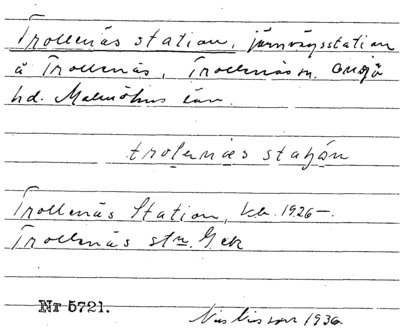 Trollenäs station, järnvägsstation
å Trollenäs, Trollenäs sn. Onsjö
hd. Malmöhus län.
trolenæs stašón
Trollenäs Station, kb. 1926—.
Trollenäs stn. G. ek
Nr 5721.
1936